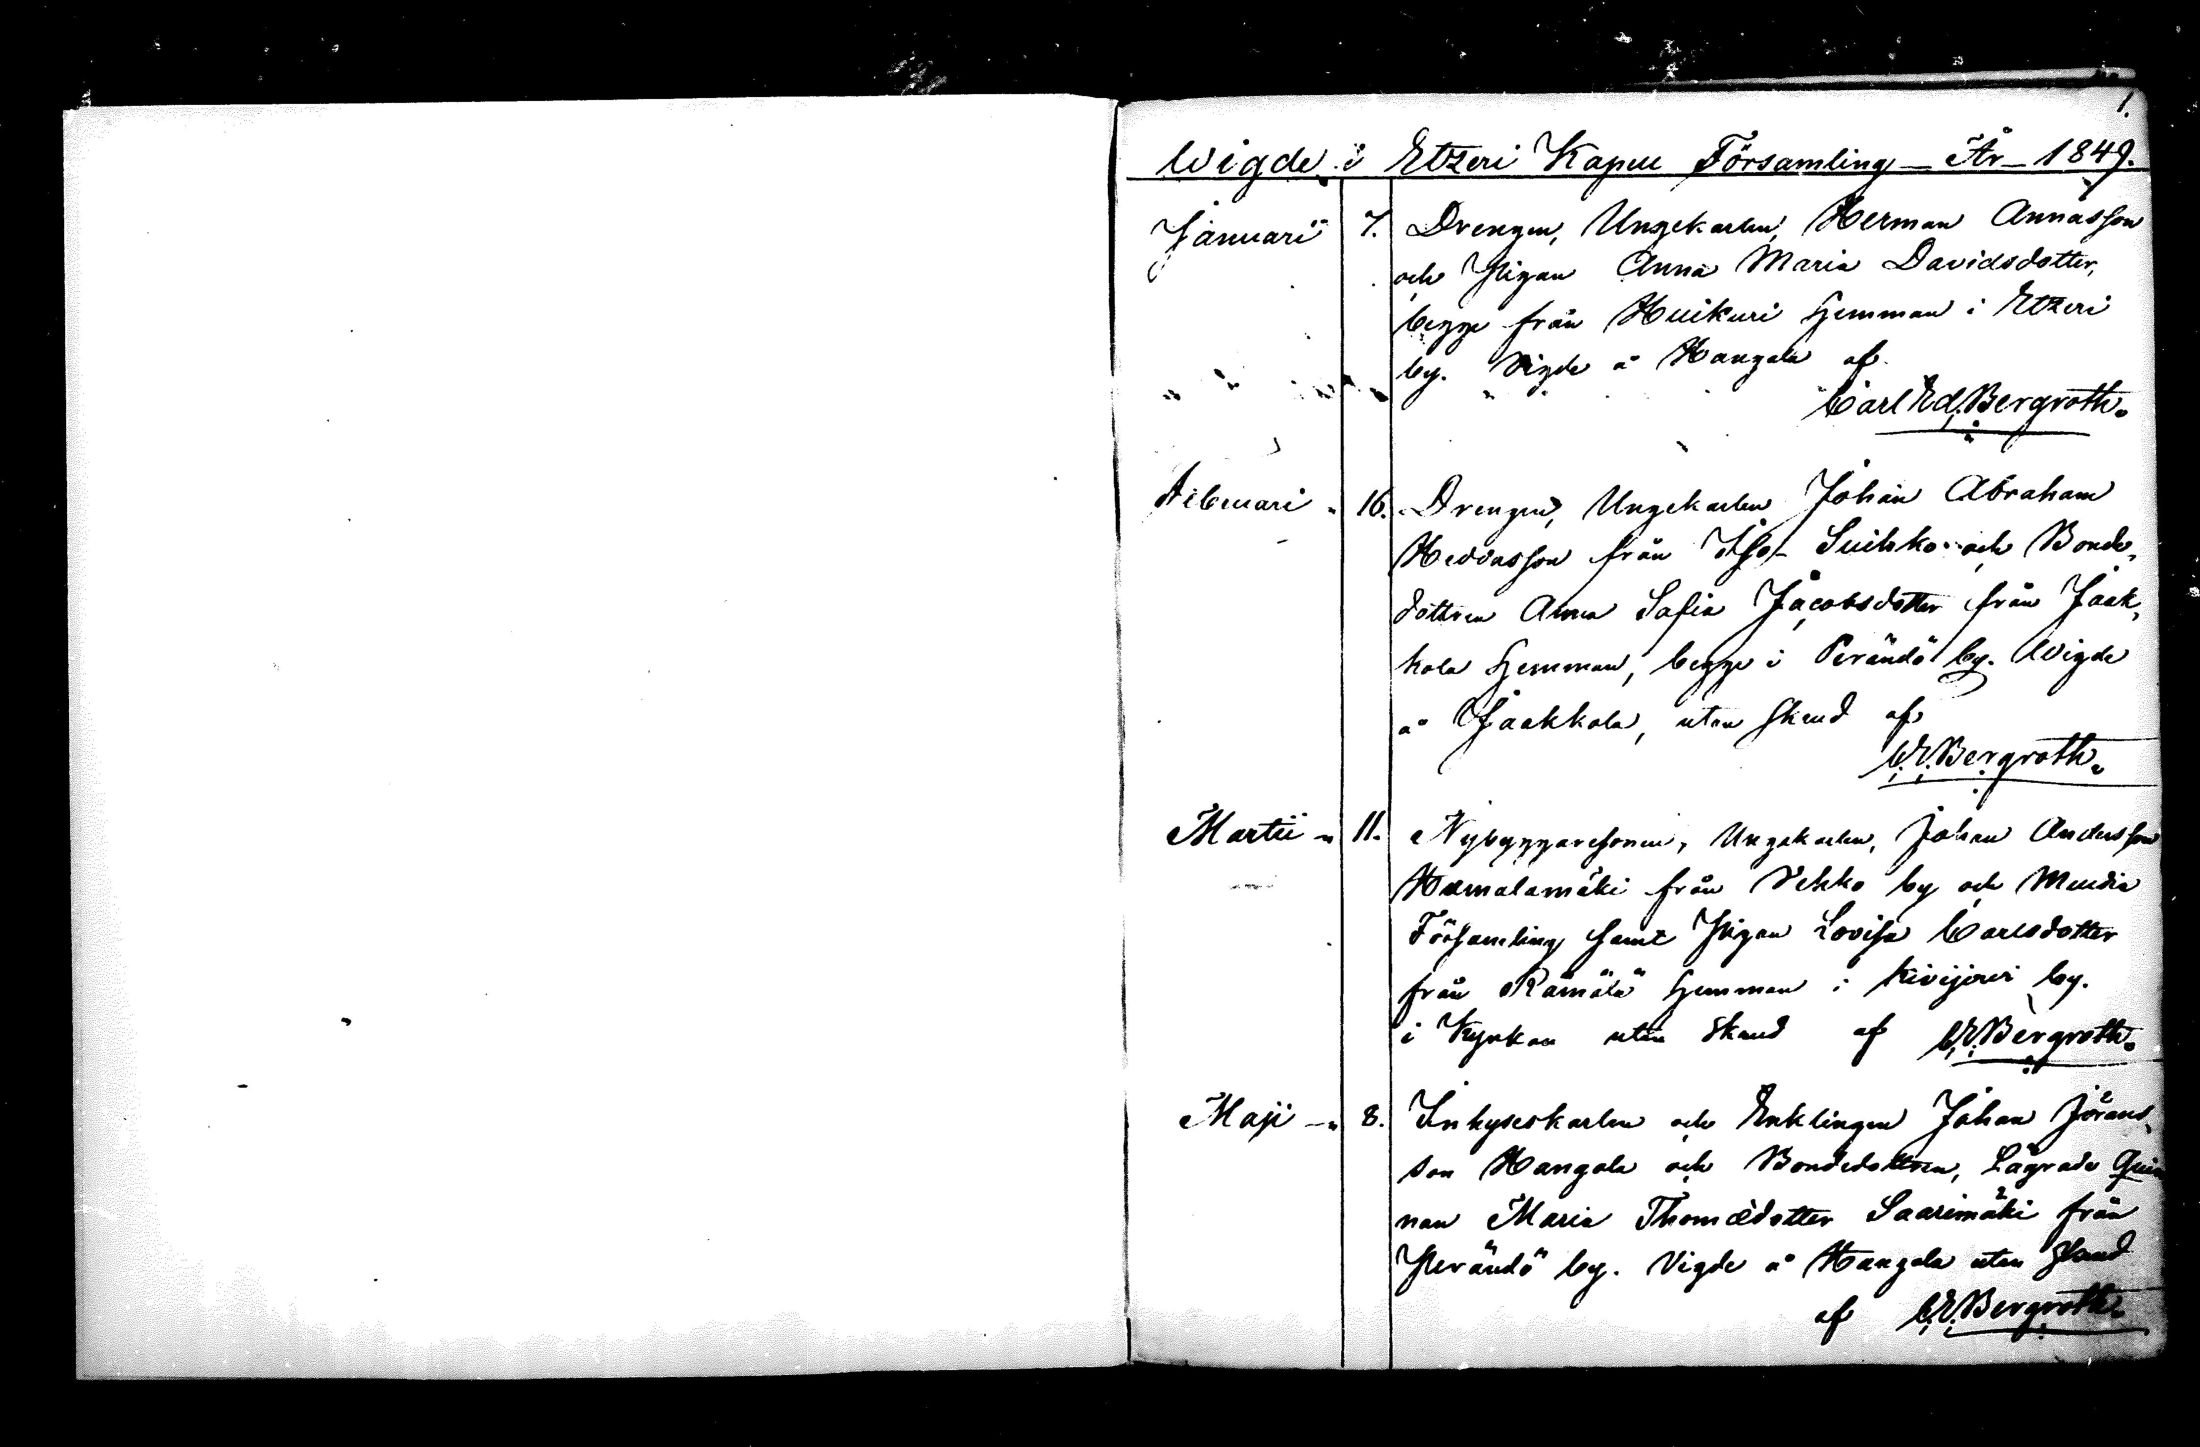 1.
Wigde i Etzeri Kapell Församling – År – 1849.
Januarii 7. Drengen, Ungekarlen, Herman Annasson
och Pigan Anna Maria Davidsdotter,
begge från Huikuri Hemman i Etzeri
by. Vigde å Hangala af
Carl Ed. Bergroth.
Februari „ 16. Drengen, Ungekarlen Johan Abraham
Heddasson från Iso-Suihko och Bonde-
dottren Anna Sofia Jacobsdotter från Jaak-
kola Hemman, begge i Perändö by. Wigde
å Jaakkola, utan skrud af
C.E. Bergroth.
Martii – „ 11. Nybyggaresonen, Ungekarlen, Johan Andersson
Hamalamäki från Vehko by och Multia
Församling samt Pigan Lovisa Carlsdotter
från Rämälä Hemman i Kivijervi by.
i Kyrkan utan skrud af C.E. Bergroth.
Maji – „ 8. Inhyseskarlen och Enklingen Johan Jörans-
son Hangala och Bondedottren, Lägrade Quin
nan Maria Thomædotter Saarimäki från
Perändö by. Vigde å Hangala utan skrud
af C.E. Bergroth.